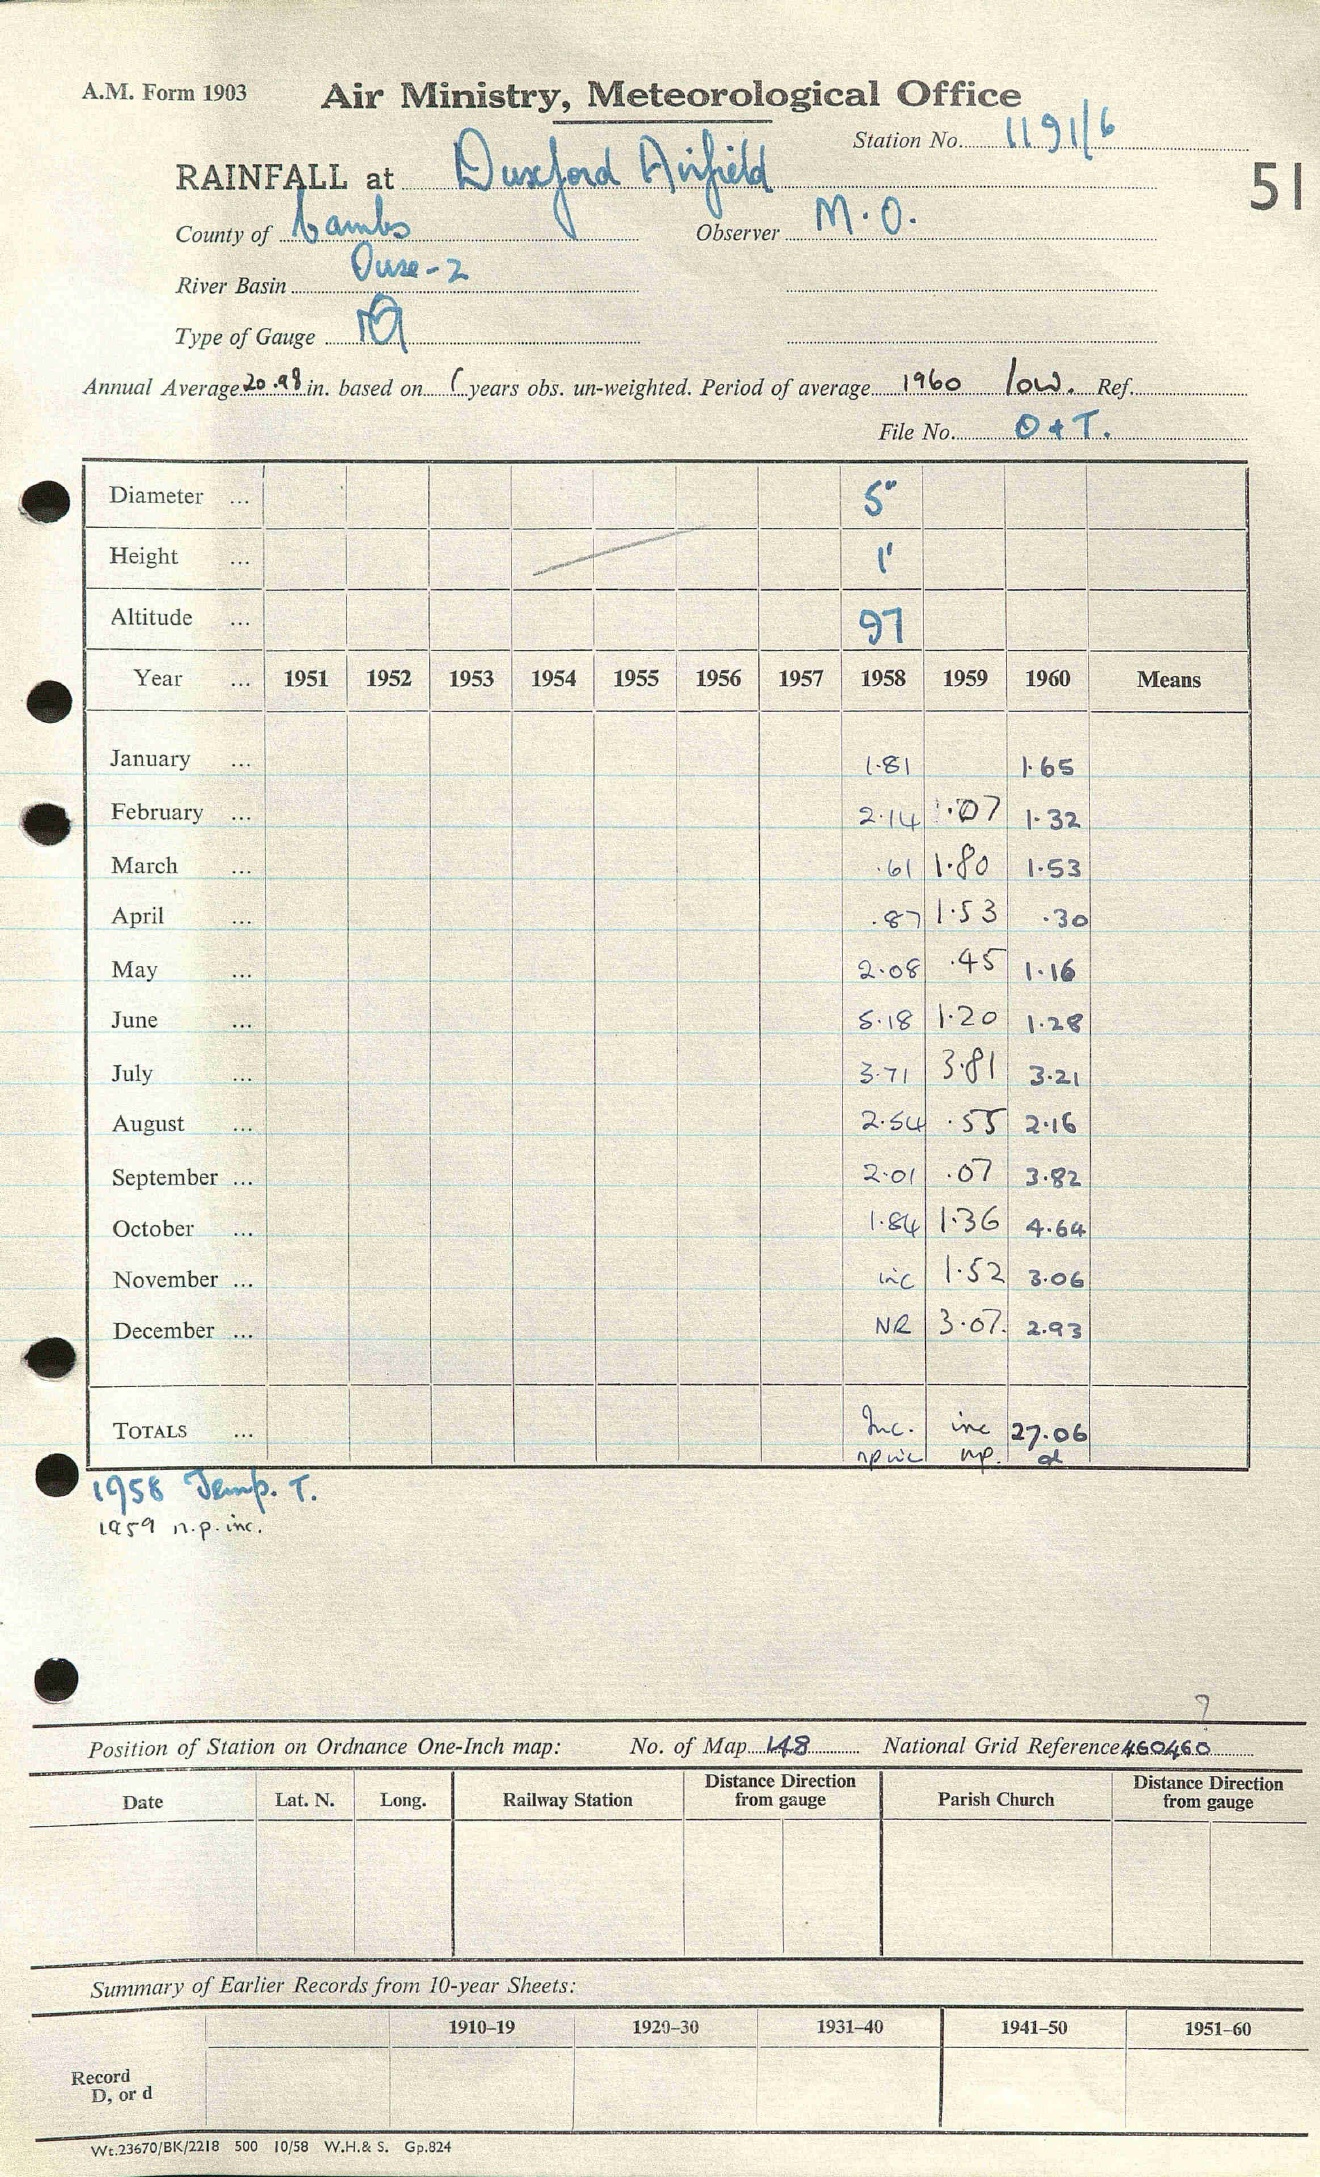 A.M. Form 1903 Air Ministry, Meteorological Office
Station No. 1191/6
RAINFALL at Duxford Airfield
51
County of Cambs Observer M.O.
River Basin Ouse-2
Type of Gauge
Annual Average 20.98 in. based on years obs. un-weighted. Period of average 1960 low. Ref.
File No. O + T.
Diameter ... 5"
Height ... 1'
Altitude ... 97
Year ... 1951 1952 1953 1954 1955 1956 1957 1958 1959 1960 Means
January ... 1.81 1.65
February ... 2.14 1.07 1.32
March ... .61 1.80 1.53
April ... .87 1.53 .30
May ... 2.08 .45 1.16
June ... 5.18 1.20 1.28
July ... 3.71 3.81 3.21
August ... 2.54 .55 2.16
September ... 2.01 .07 3.82
October ... 1.84 1.36 4.64
November ... inc 1.52 3.06
December ... NR 3.07. 2.93
TOTALS ... Inc. inc 27.06
np inc np. d
1958 Temp. T.
1959 n.p. inc.
?
Position of Station on Ordnance One-Inch map: No. of Map 148 National Grid Reference 460460
Date Lat. N. Long. Railway Station Distance Direction from gauge Parish Church Distance Direction from gauge
Summary of Earlier Records from 10-year Sheets:
1910–19 1920–30 1931–40 1941–50 1951–60
Record
D, or d
Wt.23670/BK/2218 500 10/58 W.H.& S. Gp.824